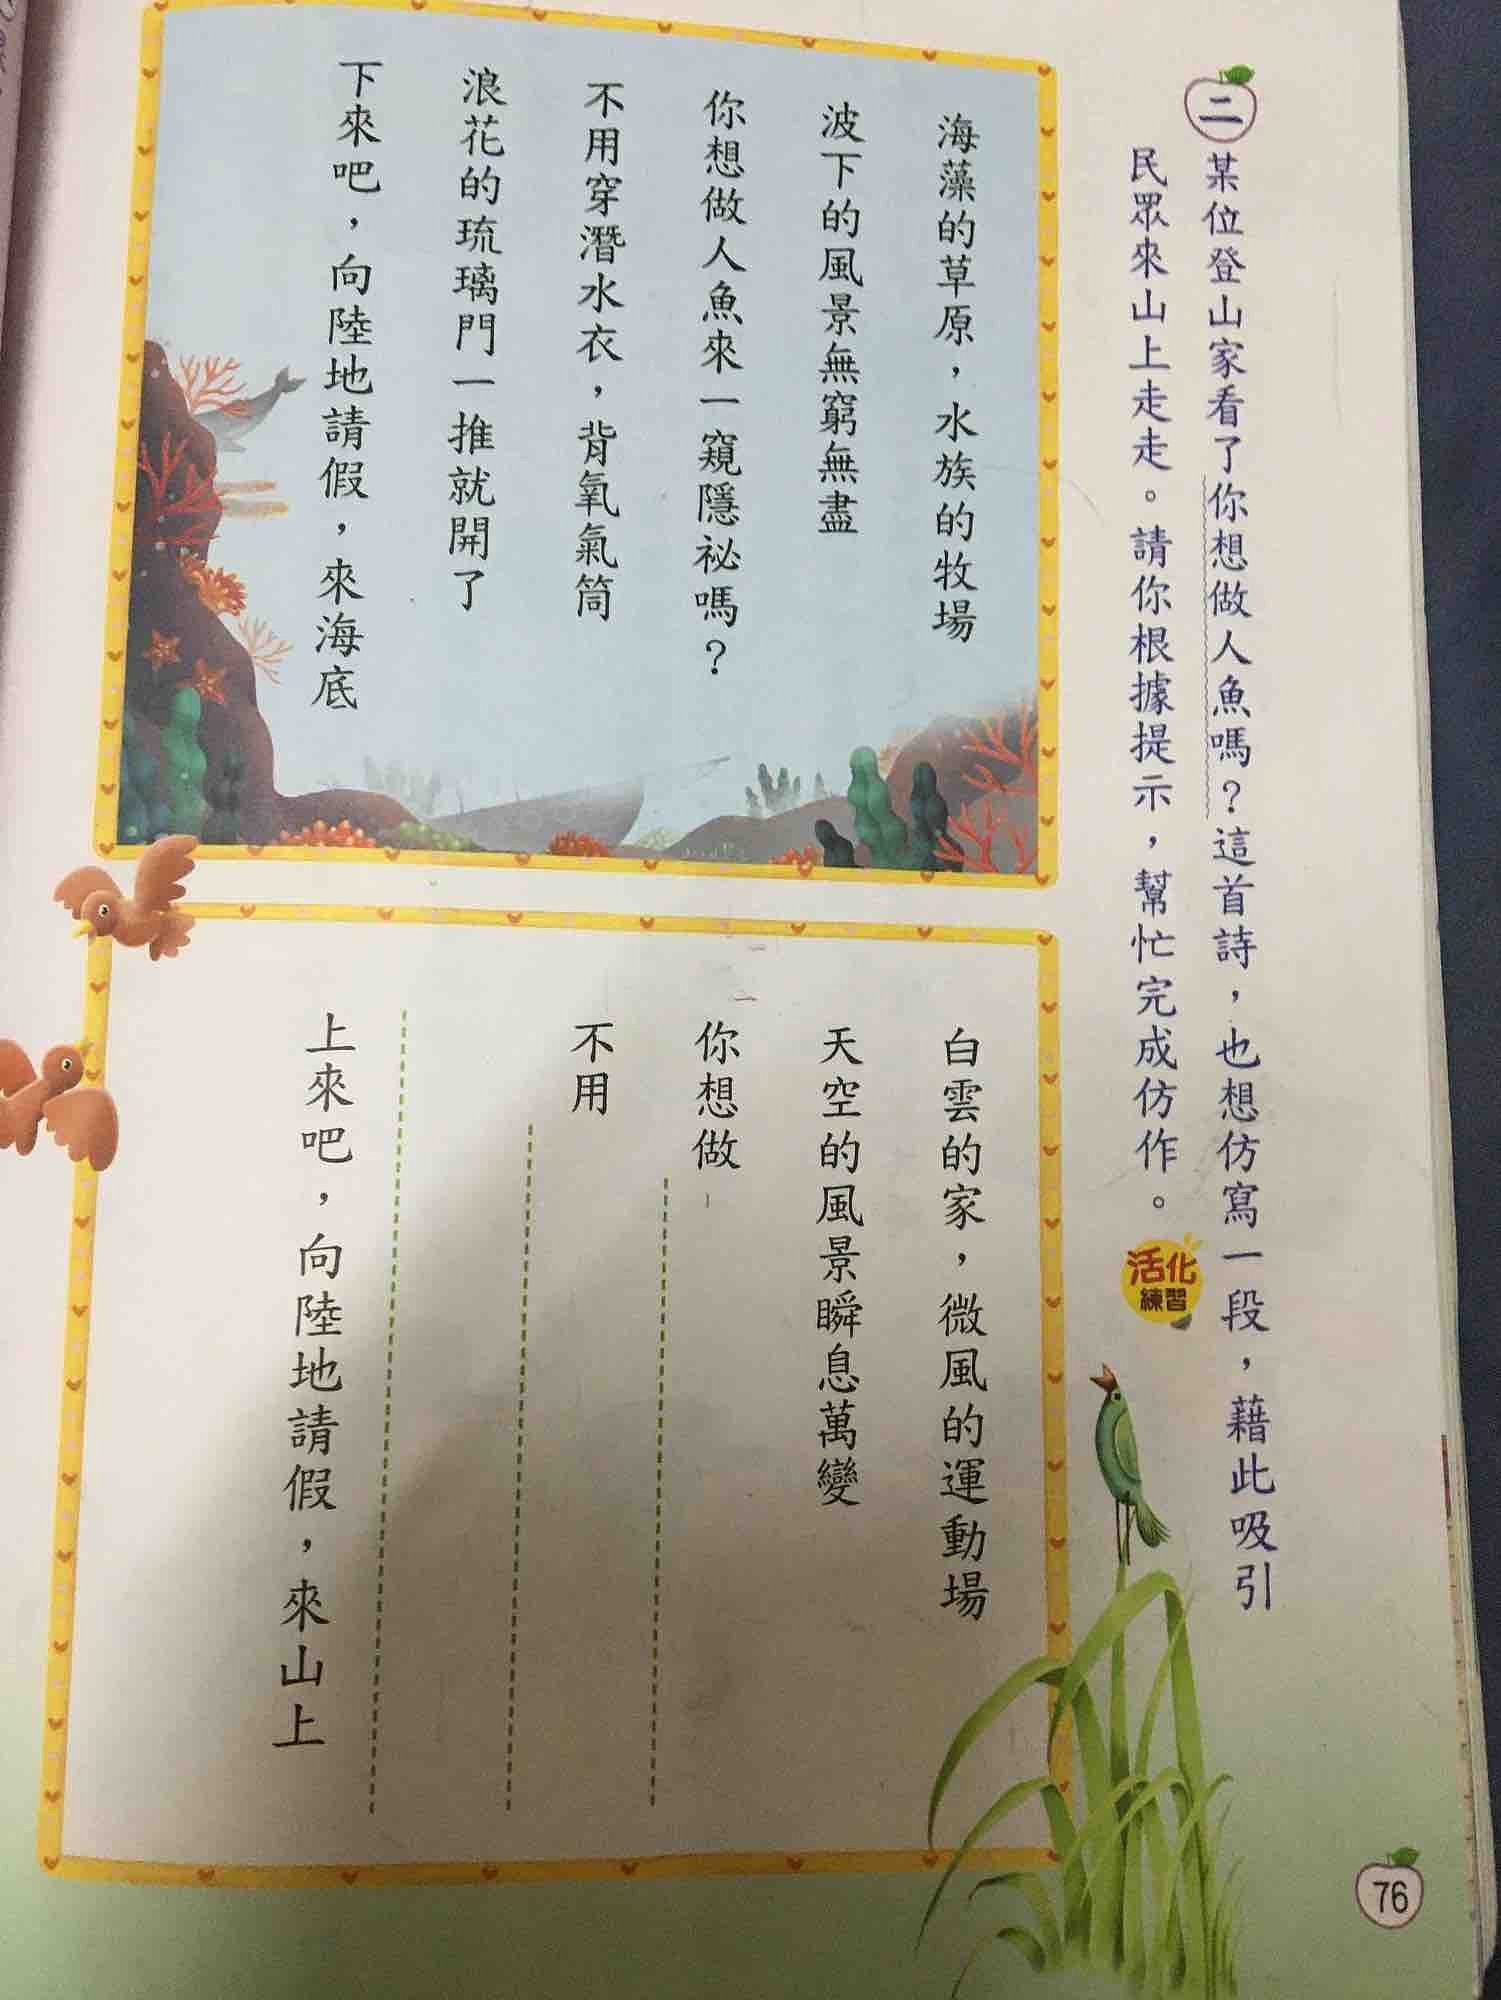 二
某位登山家看了你想做人魚嗎？這首詩，也想仿寫一段，藉此吸引
民眾來山上走走。請你根據提示，幫忙完成仿作。
活化
練習
海藻的草原，水族的牧場
波下的風景無窮無盡
你想做人魚來一窺隱祕嗎？
不用穿潛水衣，背氧氣筒
浪花的琉璃門一推就開了
下來吧，向陸地請假，來海底
白雲的家，微風的運動場
天空的風景瞬息萬變
你想做
不用
上來吧，向陸地請假，來山上
76